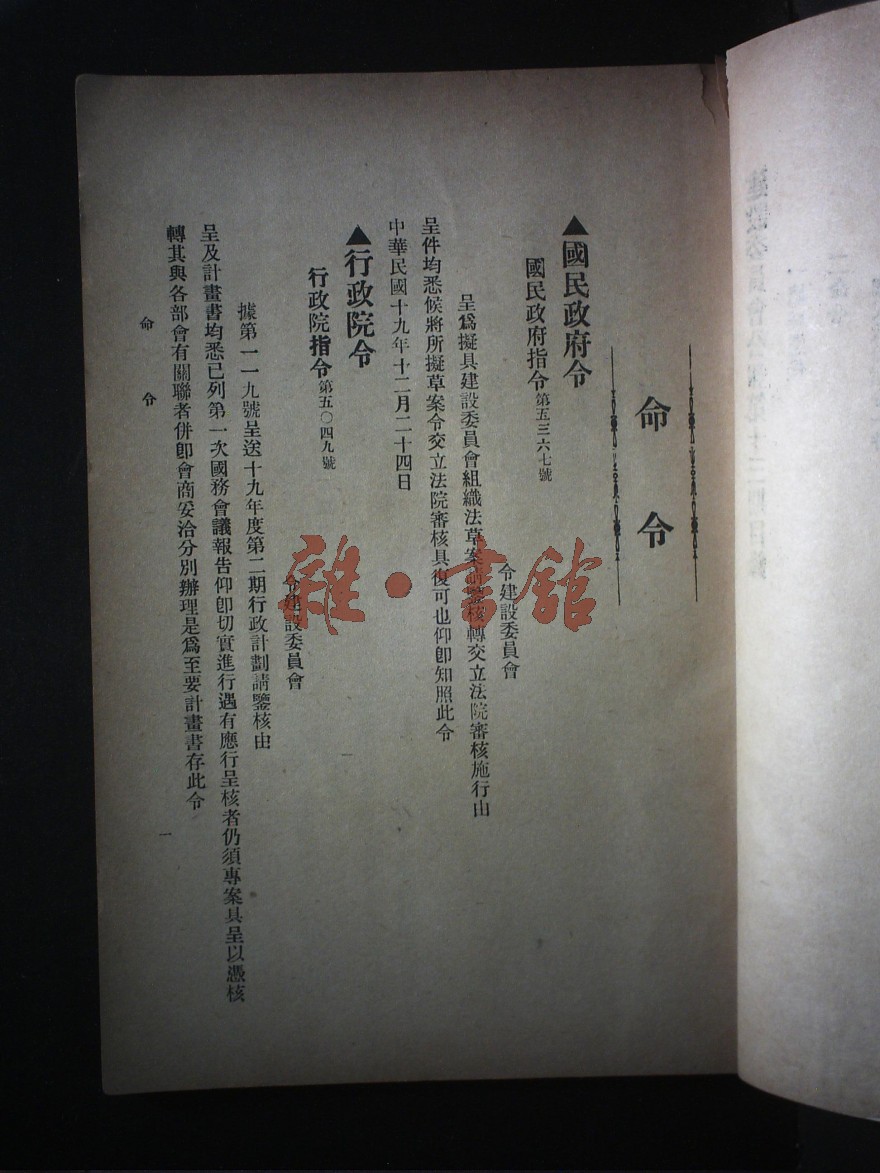 命令
▲國民政府令
國民政府指令第五三六七號
令建設委員會
呈爲擬具建設委員會組織法草案請鑒核轉交立法院審核施行由
呈件均悉候將所擬草案令交立法院審核具復可也仰卽知照此令
中華民國十九年十二月二十四日
▲行政院令
行政院指令第五〇四九號
令建設委員會
據第一一九號呈送十九年度第二期行政計劃請鑒核由
呈及計畫書均悉已列第一次國務會議報告仰卽切實進行遇有應行呈核者仍須專案具呈以憑核
轉其與各部會有關聯者併卽會商妥洽分別辦理是爲至要計畫書存此令
命令
一
雜·書館